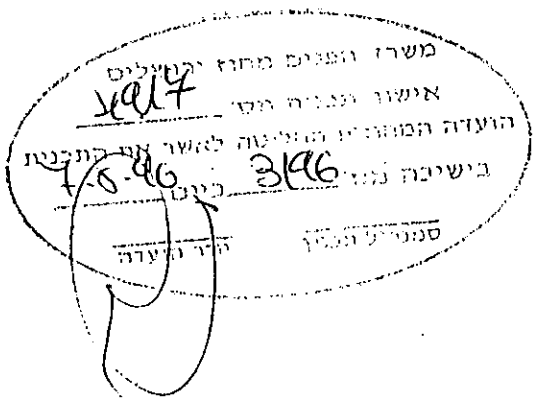 משרד הפנים מחוז ירושלים
אישור תכנית מס' 4917
הועדה המחוזית החליטה לאשר את התכנית
בישיבה מס' 3/96 ביום 7.5.96
סמנכ"ל תכנון יו"ר הועדה